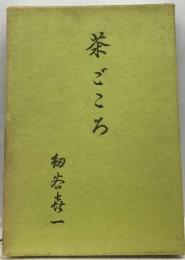 茶ごころ
釼谷喜一